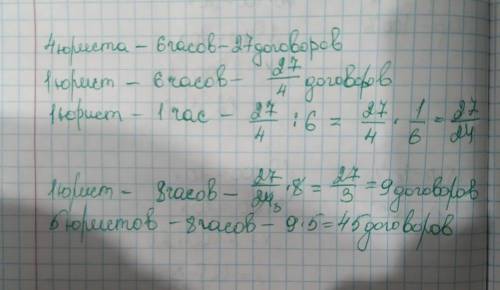 4 юриста - 6 часов - 27 договоров
1 юрист - 6 часов - 27/4 договоров
1 юрист - 1 час - 27/4 : 6 = 27/4 · 1/6 = 27/24
1 юрист - 8 часов - 27/24 3 · 8 = 27/3 = 9 договоров
5 юристов - 8 часов - 9 · 5 = 45 договоров